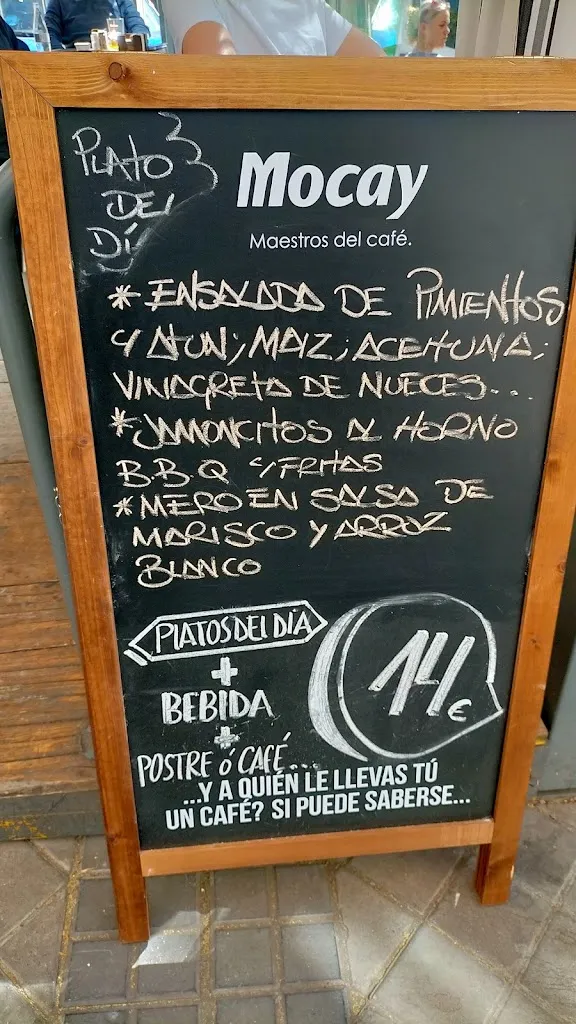 PLATO
DEL
DÍ
Mocay
Maestros del café.
* ENSALADA DE PIMIENTOS
Y ATUN; MAIZ; ACEITUNA;
VINAGRETA DE NUECES...
* JAMONCITOS AL HORNO
B.B.Q Y FRITAS
* MERO EN SALSA DE
MARISCO Y ARROZ
BLANCO
PLATOS DEL DÍA
+
BEBIDA
+
POSTRE ó CAFÉ...
14€
...Y A QUIÉN LE LLEVAS TÚ
UN CAFÉ? SI PUEDE SABERSE...